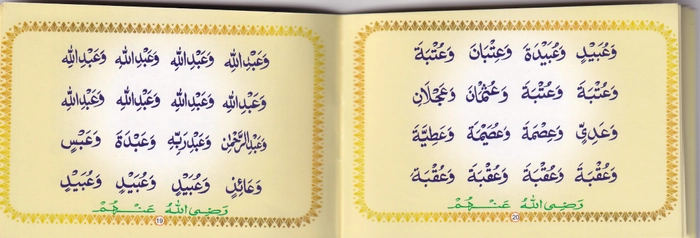 وَعَبْدِاللهِ وَعَبْدِاللهِ وَعَبْدِاللهِ وَعَبْدِاللهِ
وَعَبْدِاللهِ وَعَبْدِاللهِ وَعَبْدِاللهِ وَعَبْدِاللهِ
وَعَبْدِالرَّحْمٰنِ وَعَبْدِرَبِّهٖ وَعَبْدَةَ وَعَبْسٍ
وَعَائِذٍ وَعُبَيْدٍ وَعُبَيْدٍ وَعُبَيْدٍ
رَضِیَ اللهُ عَنْهُمْ
19
وَعُبَيْدٍ وَعُبَيْدَةَ وَعِتْبَانَ وَعُتْبَةَ
وَعُتْبَةَ وَعُتْبَةَ وَعُثْمَانَ وَعَجْلَانَ
وَعَدِيٍّ وَعِصْمَةَ وَعُصَيْمَةَ وَعَطِيَّةَ
وَعُقْبَةَ وَعُقْبَةَ وَعُقْبَةَ وَعُقْبَةَ
رَضِیَ اللهُ عَنْهُمْ
20